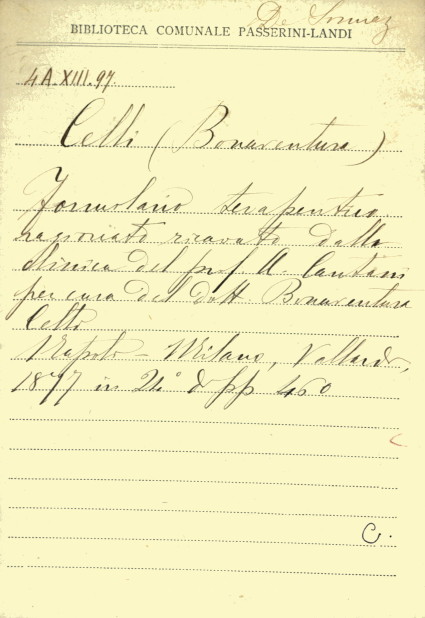 De Sonnaz
BIBLIOTECA COMUNALE PASSERINI-LANDI
4A.XIII.97.
Celli (Bonaventura)
Formolario terapeutico
ragionato ricavato dalla
clinica del prof. A. Cantani
per cura del dott. Bonaventura
Celli
Napoli - Milano, Vallardi,
1877 in 24° di pp 460
C.